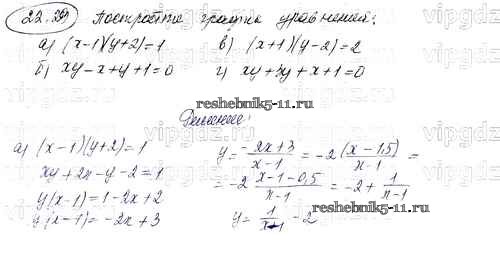 22.39) Постройте график уравнений:
а) (x-1)(y+2)=1   в) (x+1)(y-2)=2
б) xy-x+y+1=0   г) xy+3y+x+1=0
reshebnik5-11.ru
Решение:
а) (x-1)(y+2)=1
xy+2x-y-2=1
y(x-1)=1-2x+2
y(x-1)=-2x+3
y=\frac{-2x+3}{x-1}=-2\frac{(x-1,5)}{x-1}=
=-2\frac{x-1-0,5}{x-1}=-2+\frac{1}{x-1}
y=\frac{1}{x-1}-2
reshebnik5-11.ru
vipgdz.ru